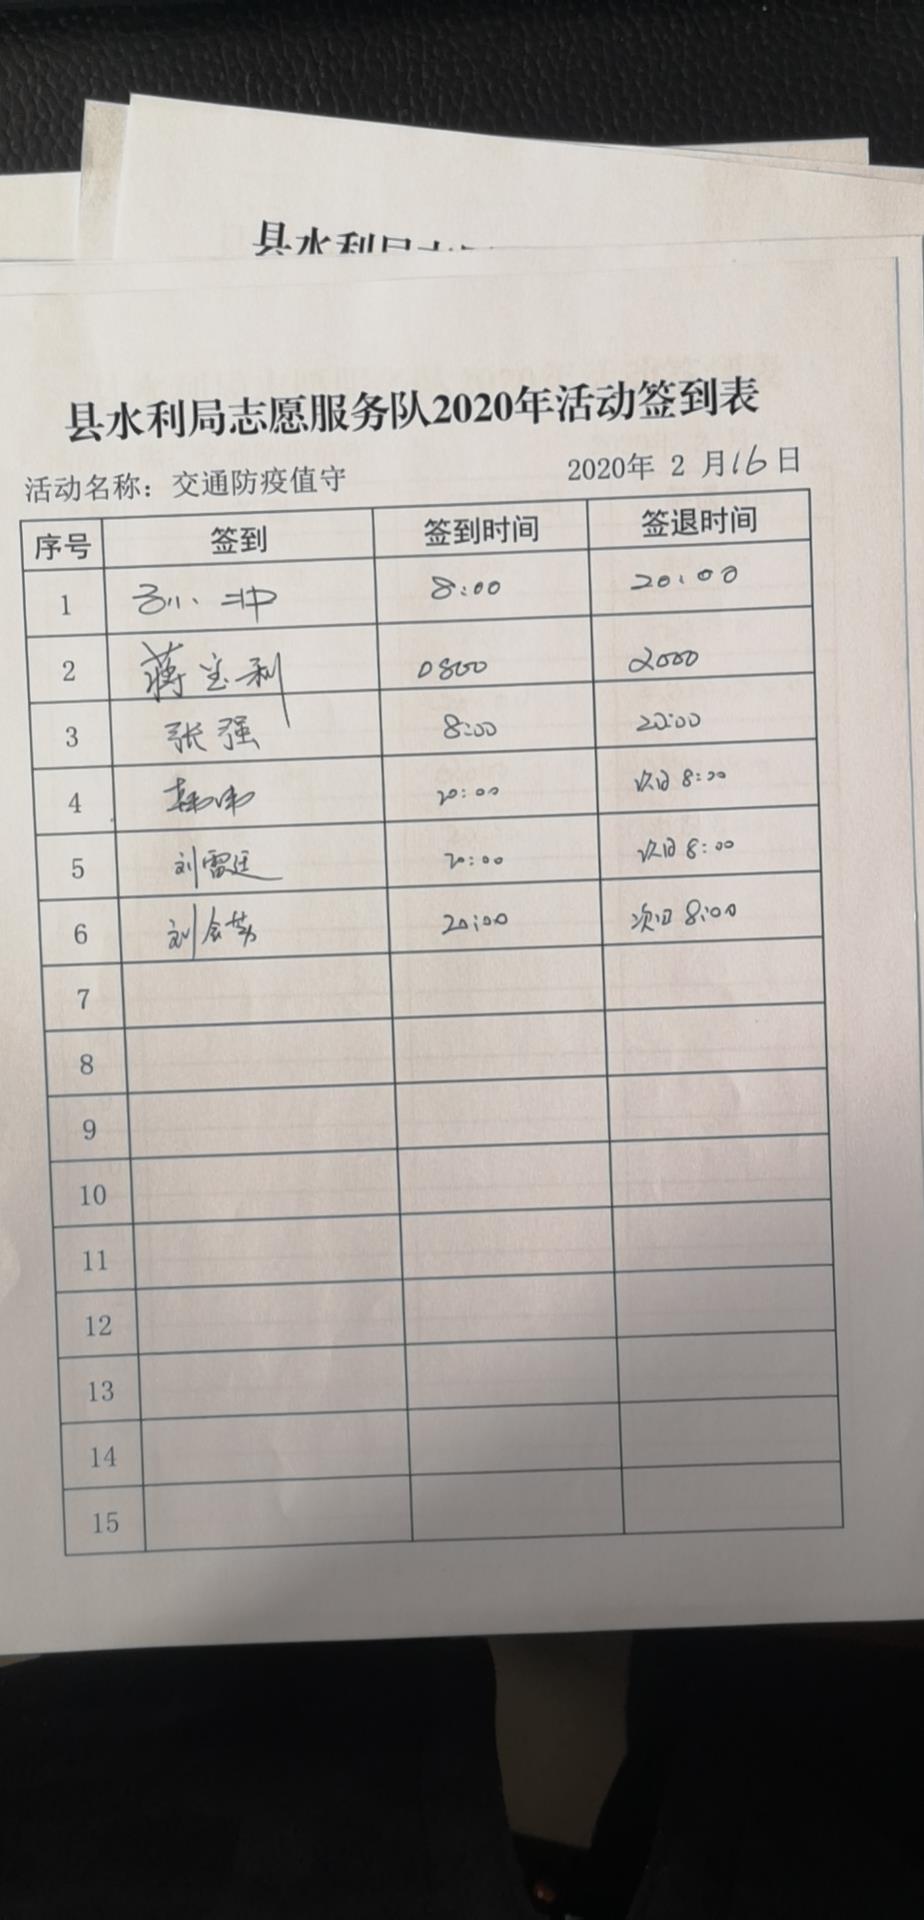 县水利局
县水利局志愿服务队2020年活动签到表
活动名称：交通防疫值守 2020年 2 月16日
序号 签到 签到时间 签退时间
1 孙冲 8:00 20:00
2 蒋宝利 0800 2000
3 张强 8:00 20:00
4 韩伟 20:00 次日 8:00
5 刘雷廷 20:00 次日 8:00
6 刘会 20:00 次日 8:00
7
8
9
10
11
12
13
14
15